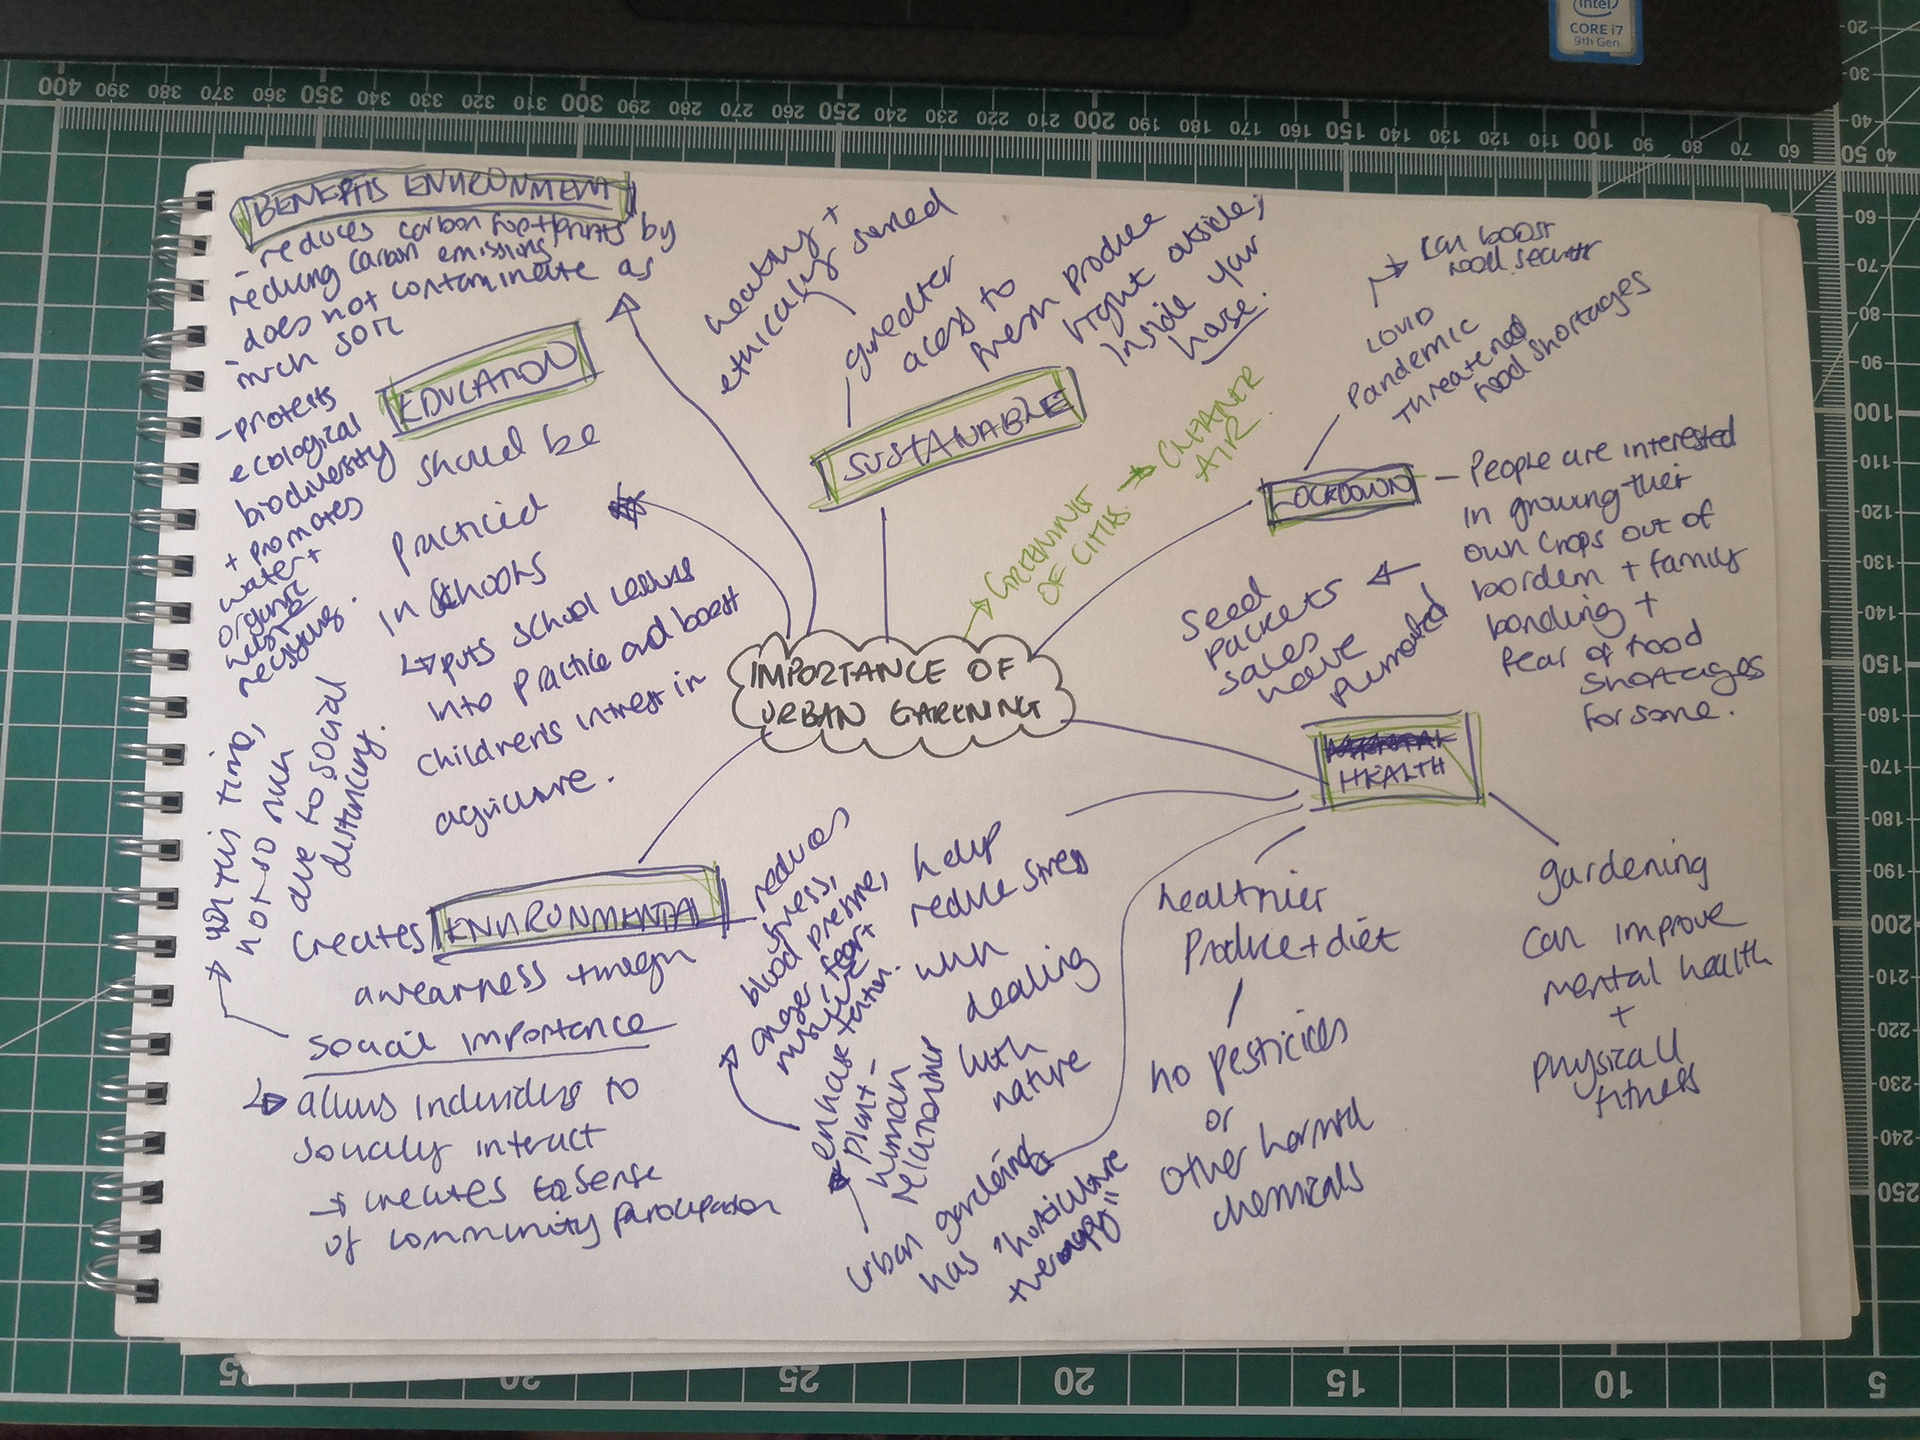 intel
CORE i7
9th Gen
400 390 380 370 360 350 340 330 320 310 300 290 280 270 260 250 240 230 220 210 200 190 180 170 160 150 140 130 120 110 100 90 80 70 60 50
20
30
40
50 40
60
70
80
90
100
110
120
130
140
150
160
170
180
190
200
210
220
230
240
250
BENEFITS ENVIRONMENT
- reduces carbon footprints by
reducing carbon emissions
- does not contaminate as
much soil
- protects
ecological
biodiversity
+ promotes
water +
organic
waste
recycling.
EDUCATION
should be
practiced
in schools
↳ puts school lessons
into practice and boost
children's intrest in
agriculture.
healthy +
ethically sourced
greater
acess to
fresh produce
right outside;
inside your
house.
SUSTANABLE
→ GREENING
OF CITIES.
→ CLEANER
AIR.
→ can boost
food security
COVID
Pandemic
threatened
food shortages
LOCKDOWN
- People are interested
in growing their
own crops out of
bordem + family
bonding +
fear of food
shortages
for some.
seed
packets
sales
have
plumated
IMPORTANCE OF
URBAN GARENING
HEALTH
gardening
can improve
mental health
+
physicall
fitness
healthier
produce + diet
no pesticides
or
other harmful
chemicals
help
reduce stress
when
dealing
with
nature
urban gardening
has "horticulture
therapy"
enhase
plant -
human
relationships
reduces
stress,
blood pressure,
anger, fear +
muscle
tention.
ENVIRONMENTAL
creates
awearness
social importance
↳ allows individuals to
socially interact
→ creates a sense
of community participation
→ with this time,
not so much
due to social
distancing.
25 20 15 10 5